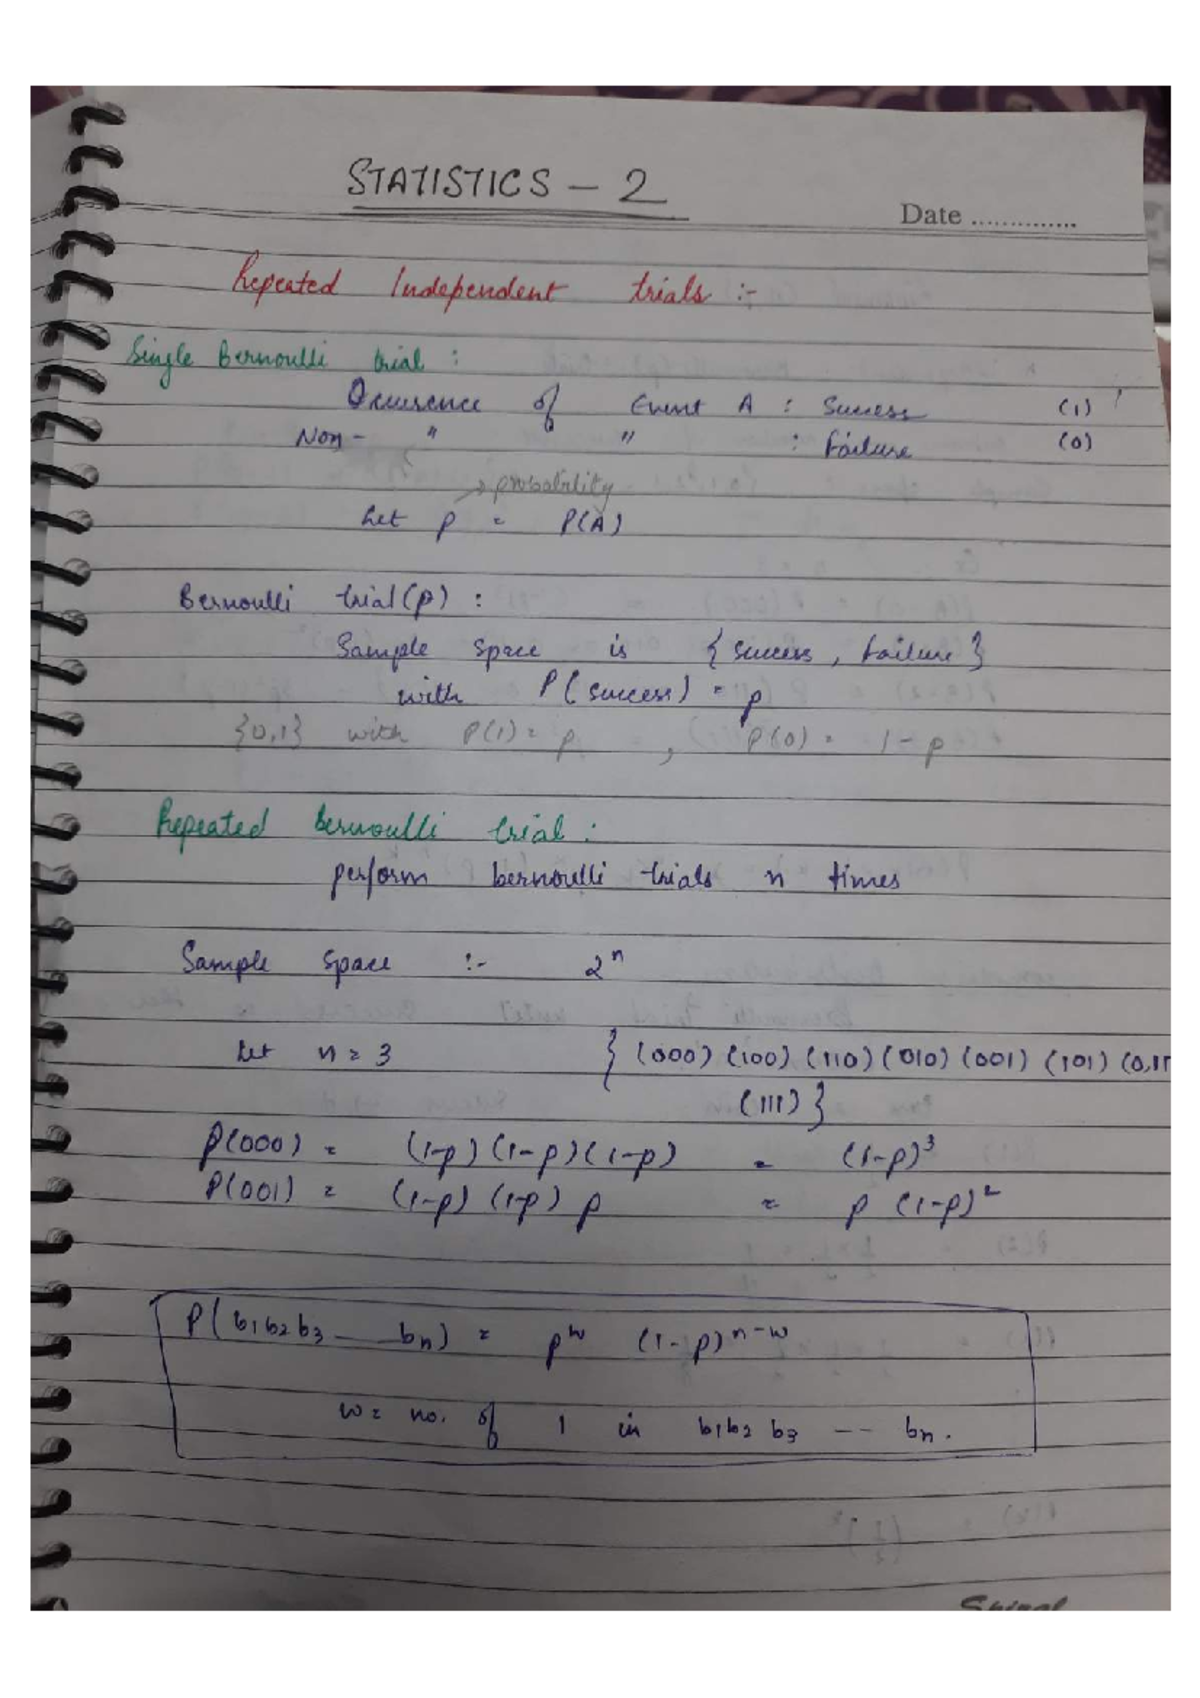 STATISTICS - 2
Date ..............
Repeated Independent trials :-
Single Bernoulli trial :
Occurence of Event A : Success (1)
Non - " " : failure (0)
→ probability
Let p = P(A)
Bernoulli trial(p) :
Sample space is {success, failure}
with P(success) = p
{0,1} with P(1) = p , P(0) = 1-p
Repeated bernoulli trial :
perform bernoulli trials n times
Sample space :- 2ⁿ
Let n = 3 { (000) (100) (110) (010) (001) (101) (0,11
(111) }
P(000) = (1-p) (1-p) (1-p) = (1-p)³
P(001) = (1-p) (1-p) p = p (1-p)²
P(b₁b₂b₃ -- bₙ) = pʷ (1-p)ⁿ⁻ʷ
w = no. of 1 in b₁b₂ b₃ -- bₙ.
Spiral